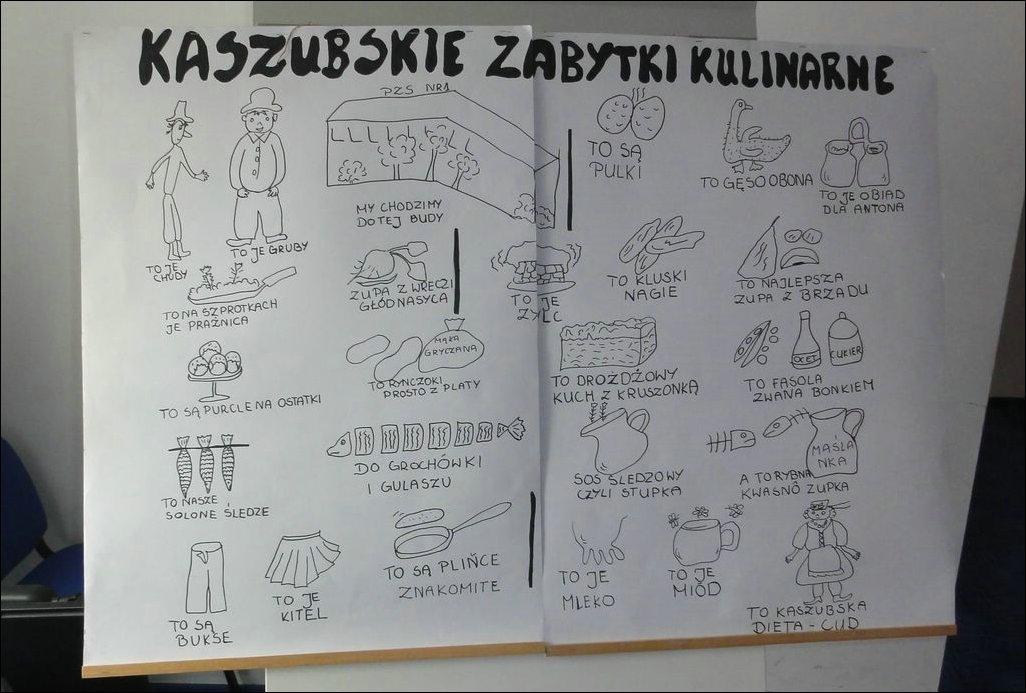 KASZUBSKIE ZABYTKI KULINARNE
PZS NR1
TO JE
CHUDY
TO JE GRUBY
MY CHODZIMY
DO TEJ BUDY
TO SĄ
PULKI
TO GĘSO OBONA
TO JE OBIAD
DLA ANTONA
TO NA SZPROTKACH
JE PRAŻNICA
ZUPA Z WRECZI
GŁÓD NASYCA
TO JE
ZYLC
TO KLUSKI
NAGIE
TO NAJLEPSZA
ZUPA Z BRZADU
TO SĄ PURCLE NA OSTATKI
MĄKA
GRYCZANA
TO RYNCZOKI
PROSTO Z PLATY
TO DROŻDŻOWY
KUCH Z KRUSZONKĄ
OCET
CUKIER
TO FASOLA
ZWANA BONKIEM
TO NASZE
SOLONE ŚLEDZE
DO GROCHÓWKI
I GULASZU
SOS ŚLEDZOWY
CZYLI STUPKA
MAŚLA
NKA
A TO RYBNA
KWASNÔ ZUPKA
TO SĄ
BUKSE
TO JE
KITEL
TO SĄ PLIŃCE
ZNAKOMITE
TO JE
MLEKO
TO JE
MIÓD
TO KASZUBSKA
DIETA - CUD